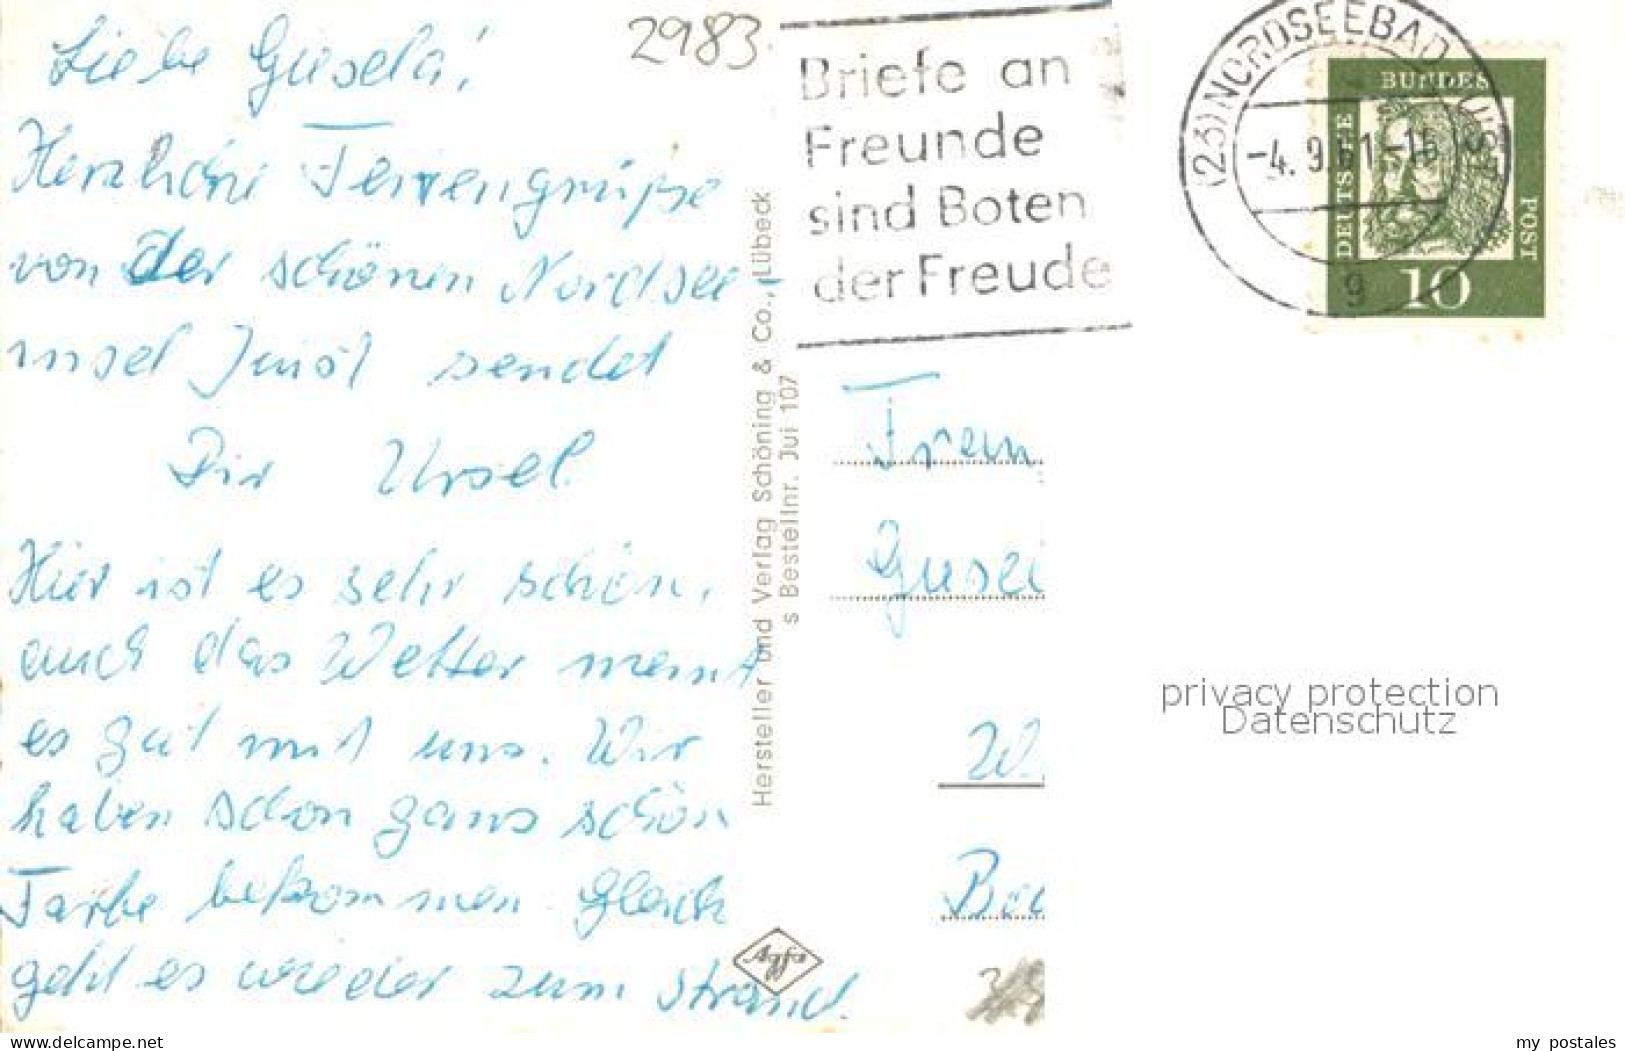 Liebe Gisela!
Herzliche Feriengrüße
von der schönen Nordsee-
insel Juist sendet
Dir Ursel.
Hier ist es sehr schön,
auch das Wetter meint
es gut mit uns. Wir
haben schon ganz schön
Farbe bekommen. Gleich
geht es wieder zum Strand.
2983
Hersteller und Verlag Schöning & Co., Lübeck
s Bestellnr. Jui 107
Agfa
Briefe an
Freunde
sind Boten
der Freude
(23) NORDSEEBAD JUIST
-4. 9. 61-
g
DEUTSCHE
BUNDES
POST
10
privacy protection
Datenschutz
www.delcampe.net
my_postales